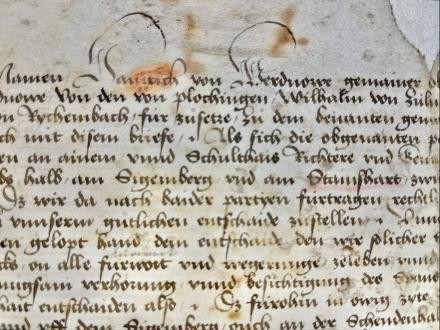 Namen Hainrich von Werdnowe gemainer
dnowe Von den von plochingen Wilhalm von Zuln
on Rychembach / fur zusetze / zu dem benanten gem
ch mit disem briefe / Als sich die obgenanten p
en an ainem vnnd Schulthais Richtere vnd Gem
ds halb am Sigemberg vnd am Stainshart zwi
Dz wir da nach baider partyen furtragen rechtli
vnnserm gutlichen entschaide zustellen / Vnnd
en gelopt hand dem entschaide den wir solicher
cks / on alle furwort vnd wegerunge zeleben vnnd
nungsam verhorung vnnd besichtigung des
hait entschaiden also / Dz furohin in ewig zyte
vnd vff dem Sigemberg / ouch an der Schendenhal